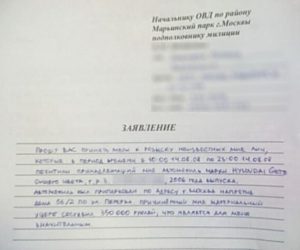 Начальнику ОВД по району
Марьинский парк г.Москвы
подполковнику милиции
ЗАЯВЛЕНИЕ
Прошу Вас принять меры к розыску неизвестных мне лиц,
которые в период времени с 10:00 14.08.08 по 23:00 14.08.08
похитили принадлежащий мне автомобиль марки Hyundai Getz
синего цвета, г.р.з. , 2006 года выпуска.
Автомобиль был припаркован по адресу г. Москва напротив
дома 26/2 по ул. Перерва. Причиненный мне материальный
ущерб составил 350 000 рублей, что является для меня
значительным.